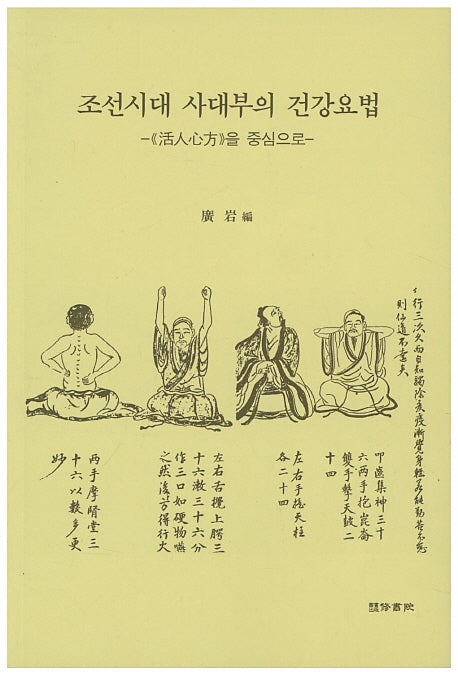 조선시대 사대부의 건강요법
-《活人心方》을 중심으로-
廣岩 編
行三次久而自知蠲除衰疫漸覺身輕若能勤苦不怠
則仙道不遠矣
叩齒集神三十
六兩手抱崑崙
雙手擊天鼓二
十四
左右手搖天柱
各二十四
左右舌攪上腭三
十六漱三十六分
作三口如硬物嚥
之然後方得行火
兩手摩腎堂三
十六以數多更
妙
修書院